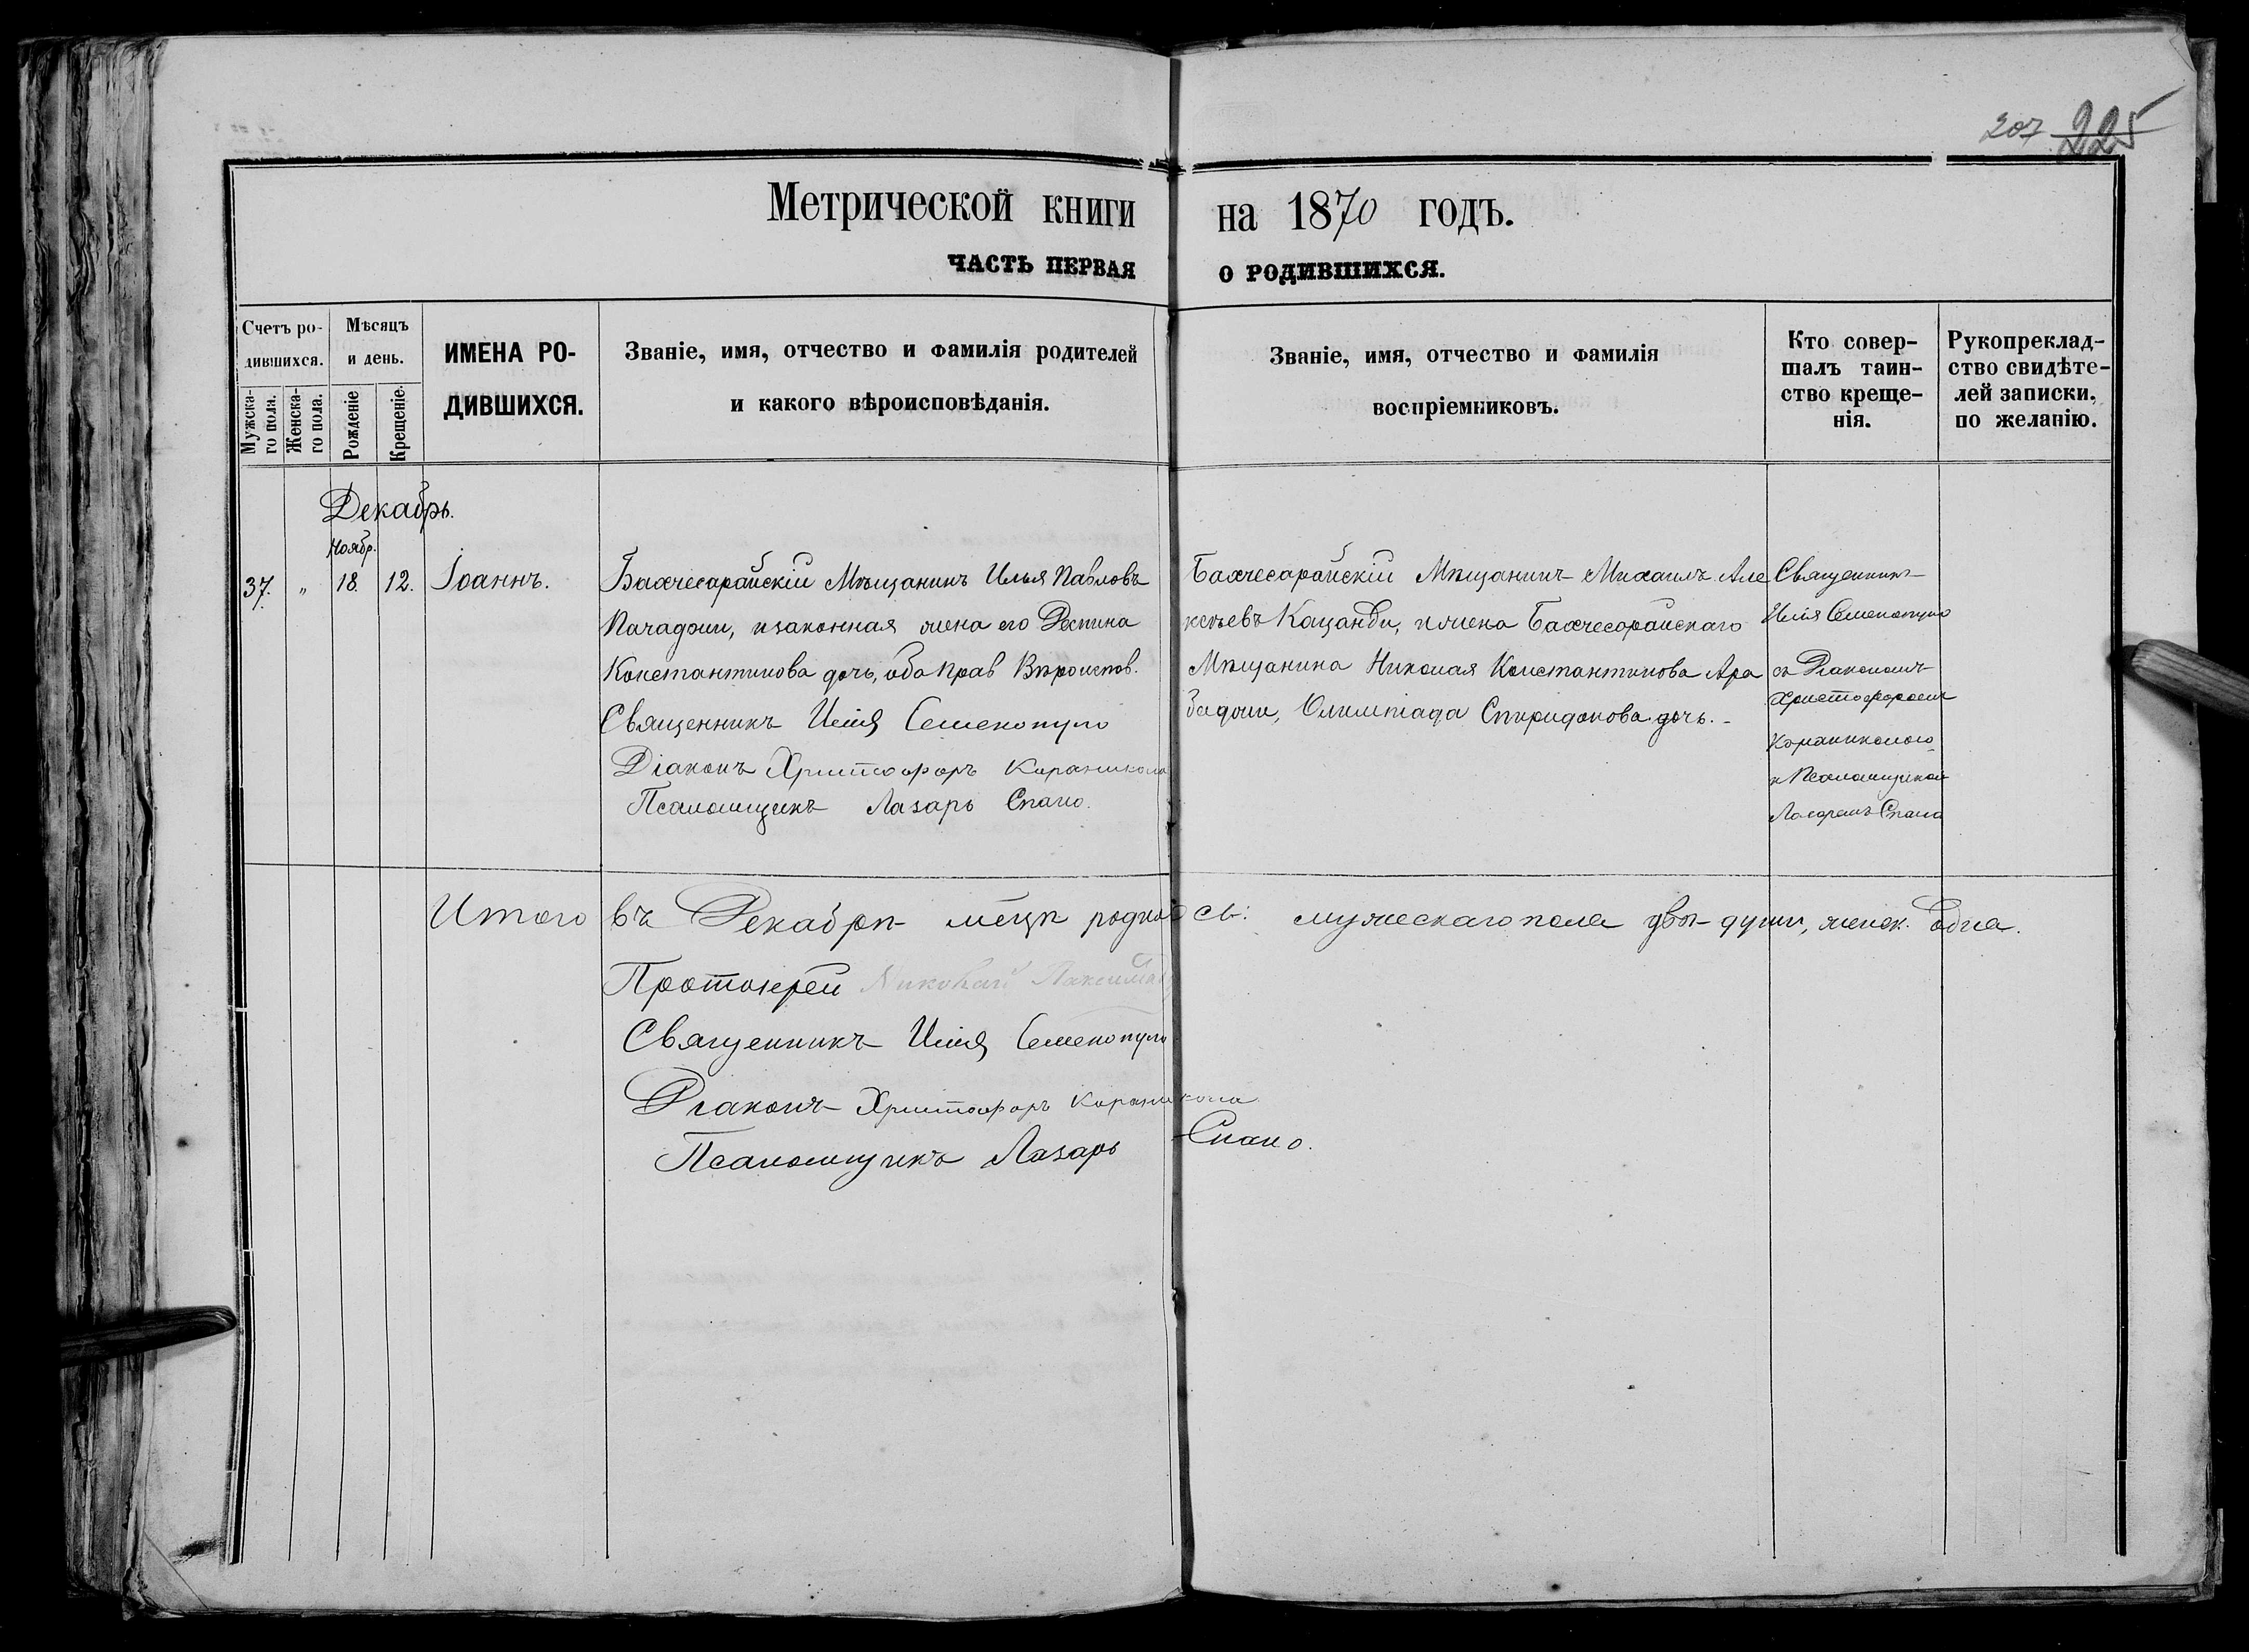 207 225
Метрической книги на 1870 годъ.
ЧАСТЬ ПЕРВАЯ О РОДИВШИХСЯ.
Счетъ ро-
дившихся.
Мужска-
го пола.
Женска-
го пола.
Мѣсяцъ
и день.
Рожденіе
Крещеніе.
ИМЕНА РО-
ДИВШИХСЯ.
Званіе, имя, отчество и фамилія родителей
и какого вѣроисповѣданія.
Званіе, имя, отчество и фамилія
воспріемниковъ.
Кто совер-
шалъ таин-
ство креще-
нія.
Рукопреклад-
ство свидѣте-
лей записки,
по желанію.
Декабрь.
Ноябр.
37. " 18. 12. Іоаннъ.
Бахчесарайскій Мѣщанинъ Илья Павловъ
Пачаджи, и законная жена его Деспина
Константинова дочь, оба Прав Вѣроиспов.
Священникъ Илія Семенопуло
Діаконъ Христофоръ Караникола
Псаломщикъ Лазарь Спано.
Бахчесарайскій Мѣщанинъ Михаилъ Але
ксѣевъ Кацанди, и жена Бахчесарайскаго
Мѣщанина Николая Константинова Ара
баджи, Олимпіада Спиридонова дочь. -
Священникъ
Илія Семенопуло
съ Діакономъ
Христофоромъ
Караниколою
и Псаломщикомъ
Лазаремъ Спано
Итого въ Декабрѣ мѣцѣ родилось: мужескаго пола двѣ души, женск. одна.
Протоіерей Николай
Священникъ Илія Семенопуло
Діаконъ Христофоръ Караникола
Псаломщикъ Лазарь Спано.